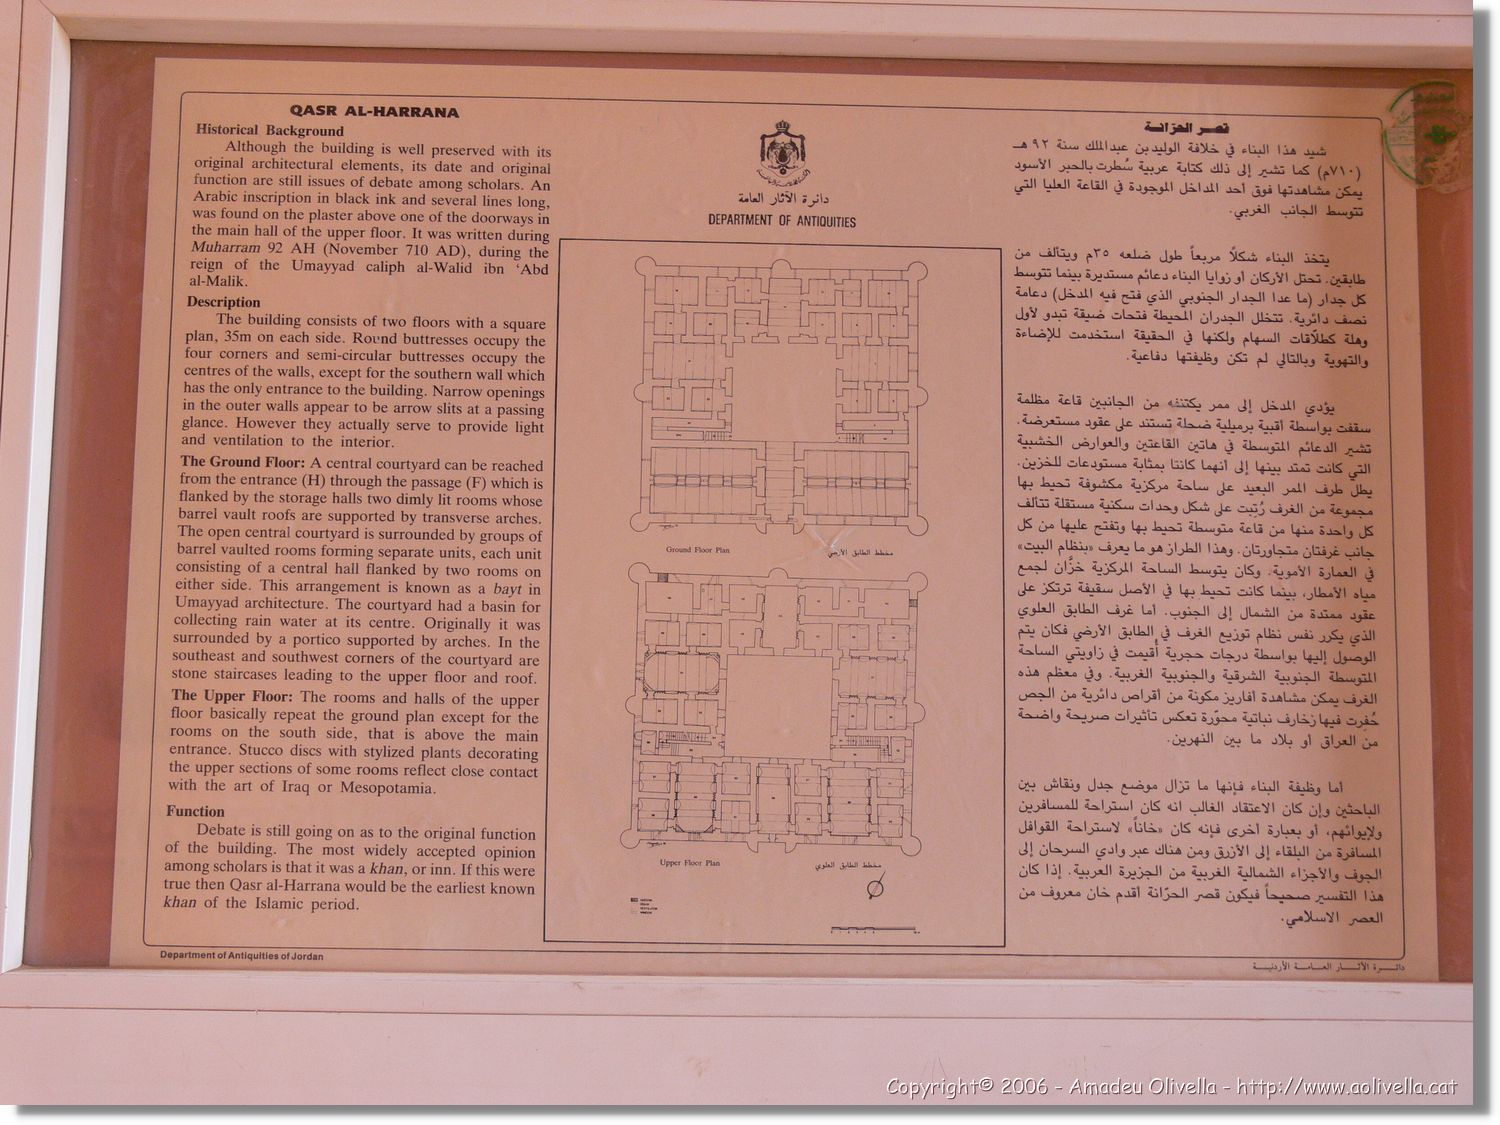 QASR AL-HARRANA
Historical Background
Although the building is well preserved with its
original architectural elements, its date and original
function are still issues of debate among scholars. An
Arabic inscription in black ink and several lines long,
was found on the plaster above one of the doorways in
the main hall of the upper floor. It was written during
Muharram 92 AH (November 710 AD), during the
reign of the Umayyad caliph al-Walid ibn ‘Abd
al-Malik.
Description
The building consists of two floors with a square
plan, 35m on each side. Round buttresses occupy the
four corners and semi-circular buttresses occupy the
centres of the walls, except for the southern wall which
has the only entrance to the building. Narrow openings
in the outer walls appear to be arrow slits at a passing
glance. However they actually serve to provide light
and ventilation to the interior.
The Ground Floor: A central courtyard can be reached
from the entrance (H) through the passage (F) which is
flanked by the storage halls two dimly lit rooms whose
barrel vault roofs are supported by transverse arches.
The open central courtyard is surrounded by groups of
barrel vaulted rooms forming separate units, each unit
consisting of a central hall flanked by two rooms on
either side. This arrangement is known as a bayt in
Umayyad architecture. The courtyard had a basin for
collecting rain water at its centre. Originally it was
surrounded by a portico supported by arches. In the
southeast and southwest corners of the courtyard are
stone staircases leading to the upper floor and roof.
The Upper Floor: The rooms and halls of the upper
floor basically repeat the ground plan except for the
rooms on the south side, that is above the main
entrance. Stucco discs with stylized plants decorating
the upper sections of some rooms reflect close contact
with the art of Iraq or Mesopotamia.
Function
Debate is still going on as to the original function
of the building. The most widely accepted opinion
among scholars is that it was a khan, or inn. If this were
true then Qasr al-Harrana would be the earliest known
khan of the Islamic period.
Department of Antiquities of Jordan
دائرة الآثار العامة
DEPARTMENT OF ANTIQUITIES
Ground Floor Plan
مخطط الطابق الأرضي
Upper Floor Plan
مخطط الطابق العلوي
قصر الحرانة
شيد هذا البناء في خلافة الوليد بن عبدالملك سنة ٩٢ هـ
(٧١٠م) كما تشير إلى ذلك كتابة عربية سُطرت بالحبر الأسود
يمكن مشاهدتها فوق أحد المداخل الموجودة في القاعة العليا التي
تتوسط الجانب الغربي.
يتخذ البناء شكلاً مربعاً طول ضلعه ٣٥م ويتألف من
طابقين. تحتل الأركان أو زوايا البناء دعائم مستديرة بينما تتوسط
كل جدار (ما عدا الجدار الجنوبي الذي فتح فيه المدخل) دعامة
نصف دائرية. تتخلل الجدران المحيطة فتحات ضيقة تبدو لأول
وهلة كطلّاقات السهام ولكنها في الحقيقة استخدمت للإضاءة
والتهوية وبالتالي لم تكن وظيفتها دفاعية.
يؤدي المدخل إلى ممر يكتنفه من الجانبين قاعة مظلمة
سقفت بواسطة أقبية برميلية ضحلة تستند على عقود مستعرضة.
تشير الدعائم المتوسطة في هاتين القاعتين والعوارض الخشبية
التي كانت تمتد بينها إلى أنهما كانتا بمثابة مستودعات للخزين.
يطل طرف الممر البعيد على ساحة مركزية مكشوفة تحيط بها
مجموعة من الغرف رُتبت على شكل وحدات سكنية مستقلة تتألف
كل واحدة منها من قاعة متوسطة تحيط بها وتفتح عليها من كل
جانب غرفتان متجاورتان. وهذا الطراز هو ما يعرف «بنظام البيت»
في العمارة الأموية. وكان يتوسط الساحة المركزية خزّان لجمع
مياه الأمطار، بينما كانت تحيط بها في الأصل سقيفة ترتكز على
عقود ممتدة من الشمال إلى الجنوب. أما غرف الطابق العلوي
الذي يكرر نفس نظام توزيع الغرف في الطابق الأرضي فكان يتم
الوصول إليها بواسطة درجات حجرية أُقيمت في زاويتي الساحة
المتوسطة الجنوبية الشرقية والجنوبية الغربية. وفي معظم هذه
الغرف يمكن مشاهدة أفاريز مكونة من أقراص دائرية من الجص
حُفرت فيها زخارف نباتية محوّرة تعكس تأثيرات صريحة واضحة
من العراق أو بلاد ما بين النهرين.
أما وظيفة البناء فإنها ما تزال موضع جدل ونقاش بين
الباحثين وإن كان الاعتقاد الغالب انه كان استراحة للمسافرين
ولإيوائهم، أو بعبارة أخرى فإنه كان «خاناً» لاستراحة القوافل
المسافرة من البلقاء إلى الأزرق ومن هناك عبر وادي السرحان إلى
الجوف والأجزاء الشمالية الغربية من الجزيرة العربية. إذا كان
هذا التفسير صحيحاً فيكون قصر الحرّانة أقدم خان معروف من
العصر الاسلامي.
دائرة الآثار العامة الأردنية
Copyright© 2006 - Amadeu Olivella - http://www.aolivella.cat